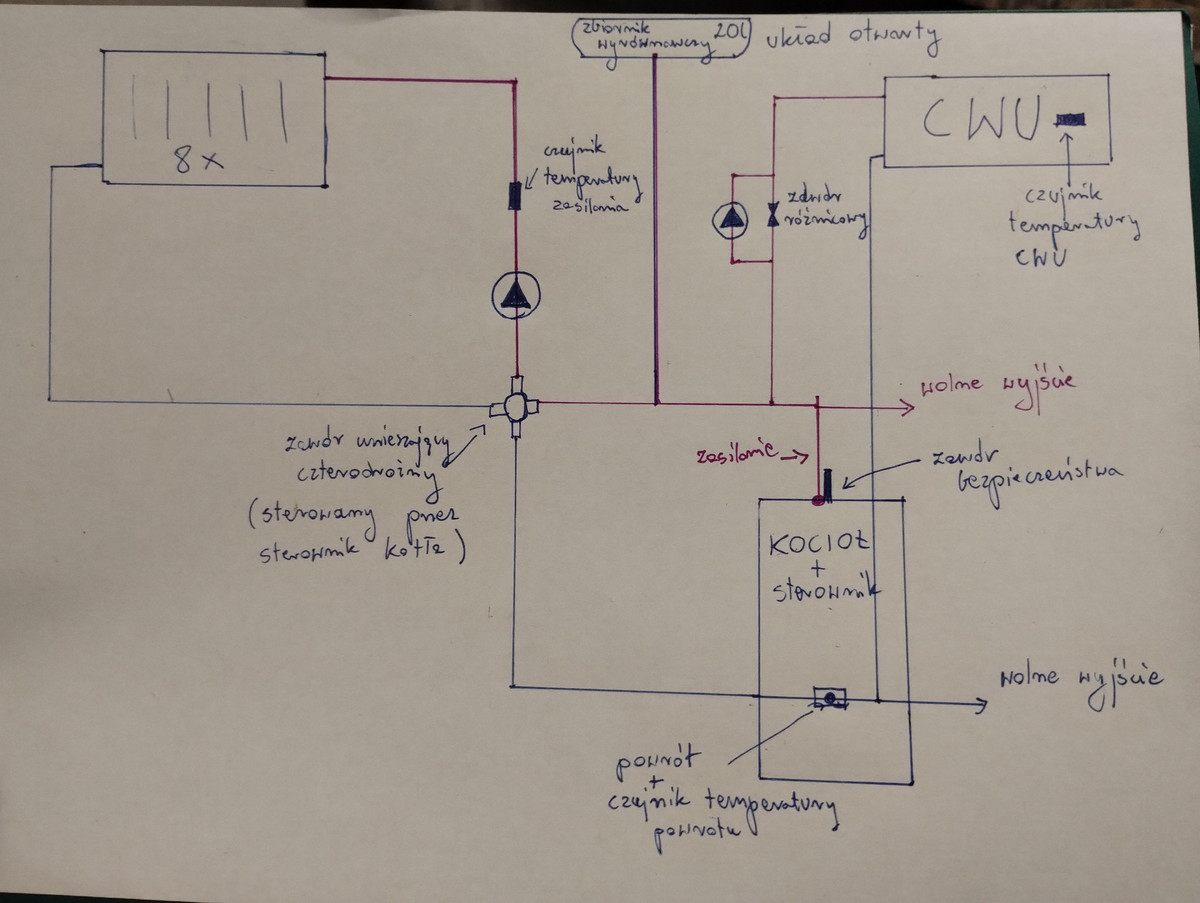 zbiornik 20l
wyrównawczy
układ otwarty
8x
czujnik
temperatury
zasilania
zawór
różnicowy
CWU
czujnik
temperatury
CWU
wolne wyjście
zawór mieszający
czterodrożny
(sterowany przez
sterownik kotła)
zasilanie
zawór
bezpieczeństwa
KOCIOŁ
+
sterownik
wolne wyjście
powrót
+
czujnik temperatury
powrotu